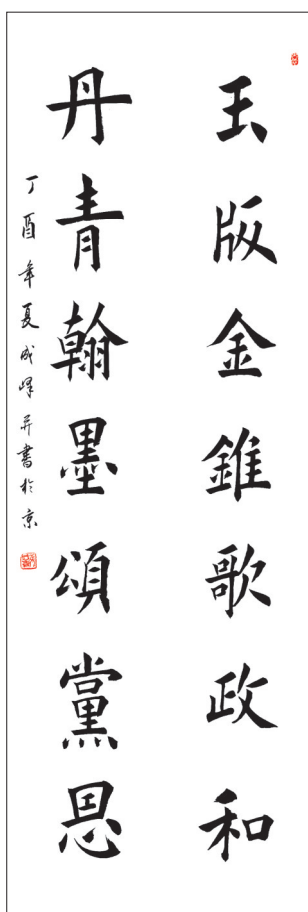 玉版金錐歌政和
丹青翰墨頌黨恩
丁酉年夏成峰并書於京